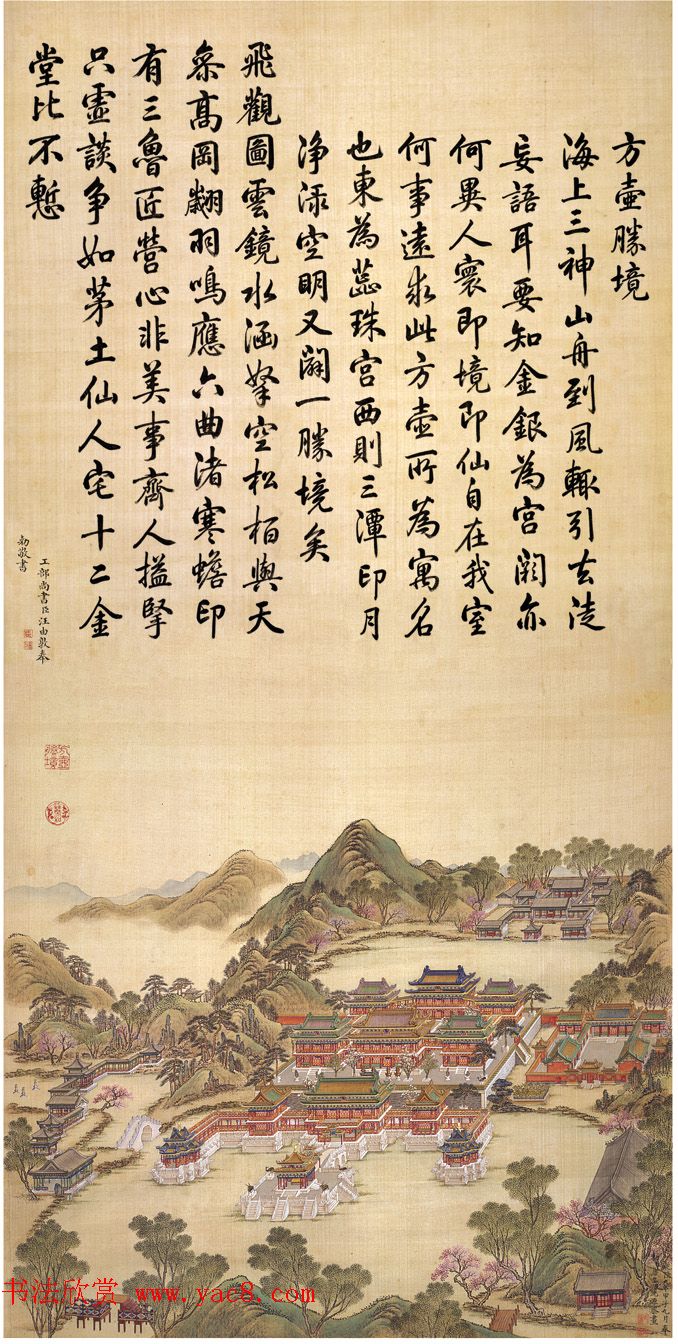 方壺勝境
海上三神山舟到風輒引去徒
妄語耳要知金銀為宮闕亦
何異人寰即境即仙自在我室
何事遠求此方壺所為寓名
也東為蕊珠宮西則三潭印月
淨淥空明又闢一勝境矣
飛觀圖雲鏡水涵拏空松栢與天
叅髙岡翽羽鳴應六曲渚寒蟾印
有三魯匠營心非美事齊人搤掔
只虛談争如茅土仙人宅十二金
堂比不慙
工部尚書臣汪由敦奉
勅敬書
书法欣赏 www.yac8.com